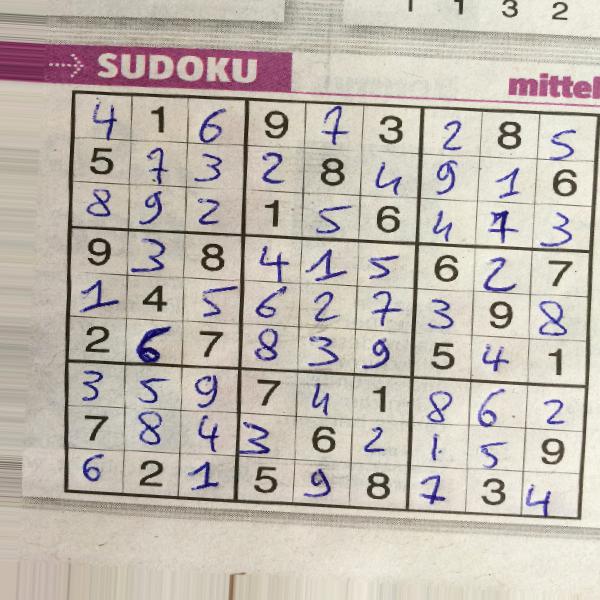 1 1 3 2
SUDOKU
mittel
4 1 6 9 7 3 2 8 5
5 7 3 2 8 4 9 1 6
8 9 2 1 5 6 4 7 3
9 3 8 4 1 5 6 2 7
1 4 5 6 2 7 3 9 8
2 6 7 8 3 9 5 4 1
3 5 9 7 4 1 8 6 2
7 8 4 3 6 2 1 5 9
6 2 1 5 9 8 7 3 4